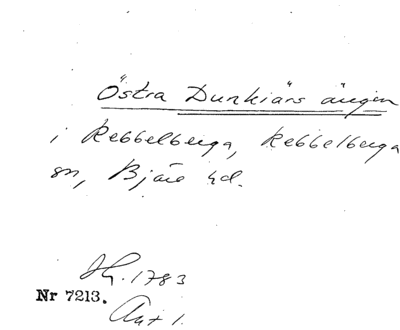 Östra Dunkiärs ängen
i Rebbelberga, Rebbelberga
sn, Bjäre hd.
Hy. 1783
Nr 7213.
Akt 1.